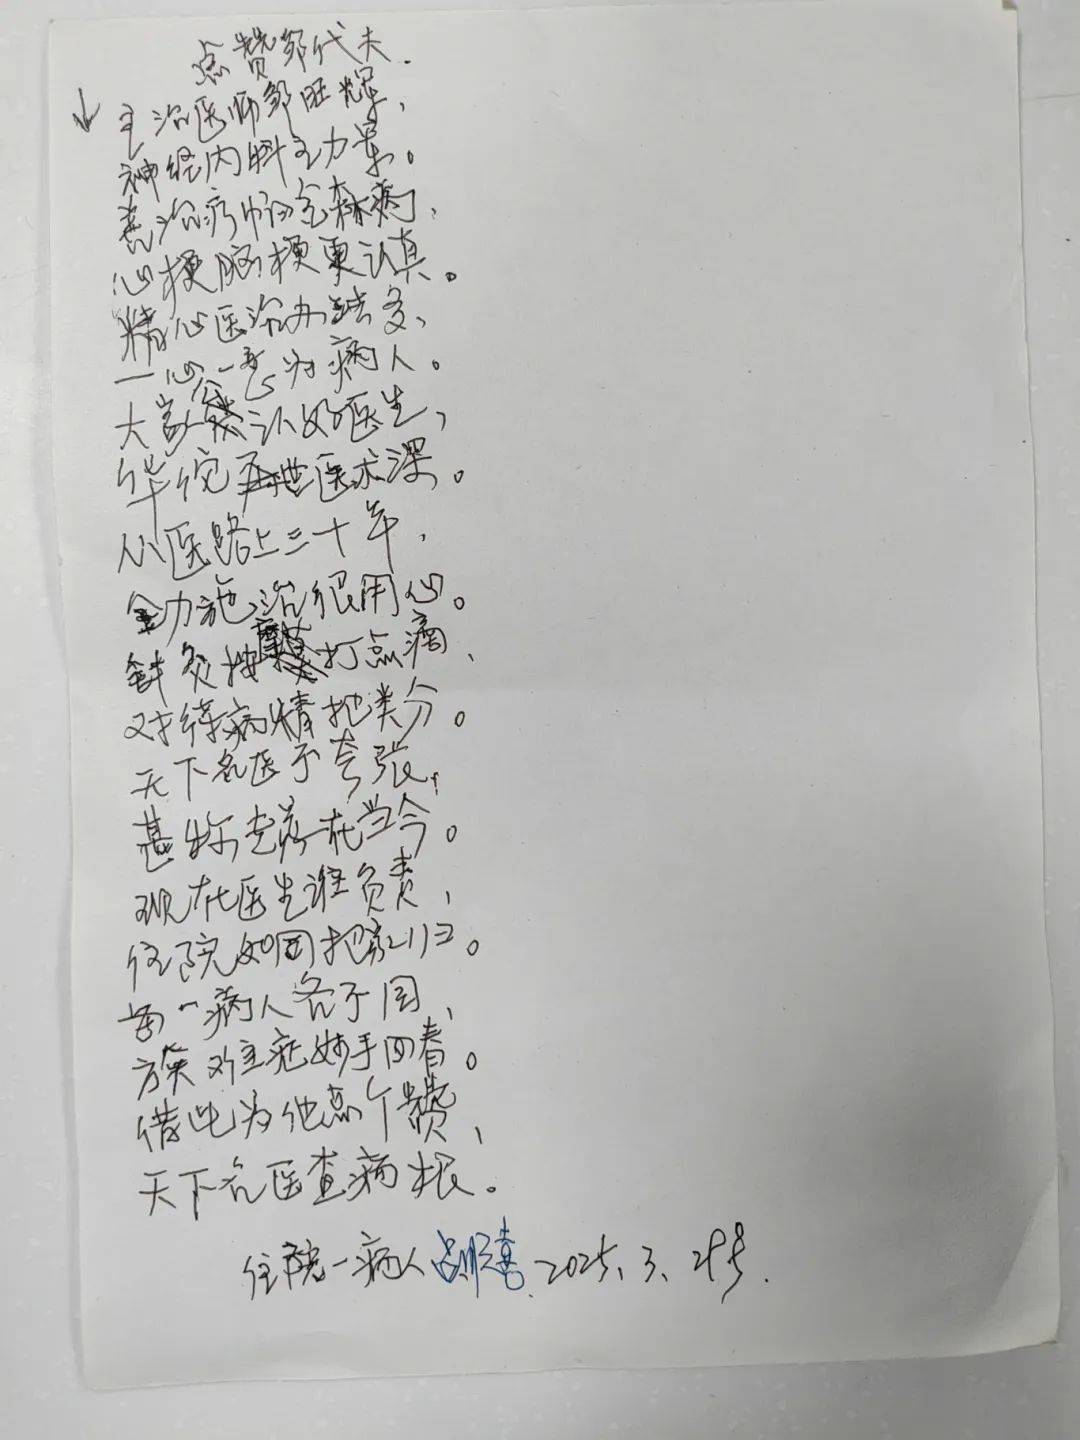 点赞邹代夫.
主治医师邹旺辉,
神经内科主力军。
善治疗帕金森病,
心梗脑梗更认真。
精心医治办法多,
一心一意为病人。
大家公认好医生,
华佗再世医术深。
从医路上三十年,
全力施治很用心。
针灸按摩打点滴,
对待病情把类分。
天下名医不夸张,
甚称老将在当今。
现在医生谁负责,
住院如同把家归。
每一病人各不同,
方案对症妙手回春。
借此为他点个赞,
天下名医查病根。
住院一病人 占顺喜 2025.3.29号.